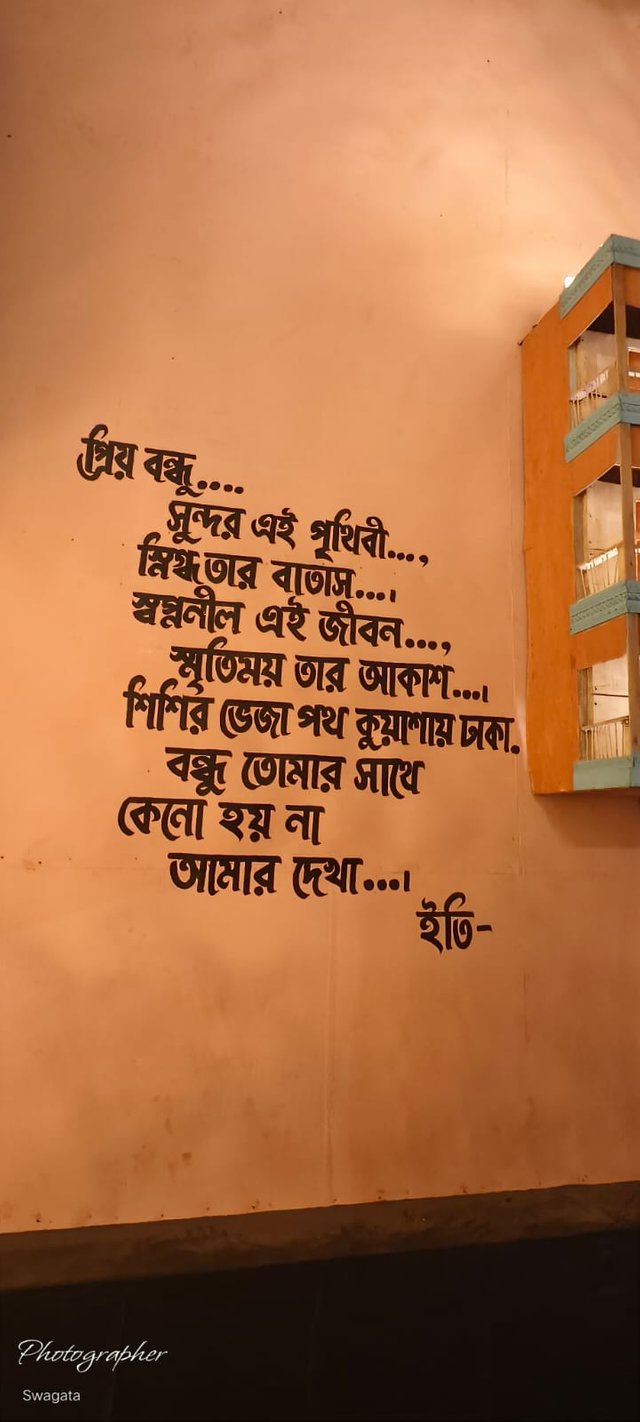 প্রিয় বন্ধু....
সুন্দর এই পৃথিবী...,
স্নিগ্ধ তার বাতাস...।
স্বপ্ননীল এই জীবন...,
স্মৃতিময় তার আকাশ...।
শিশির ভেজা পথ কুয়াশায় ঢাকা.
বন্ধু তোমার সাথে
কেনো হয় না
আমার দেখা...।
ইতি-
Photographer
Swagata